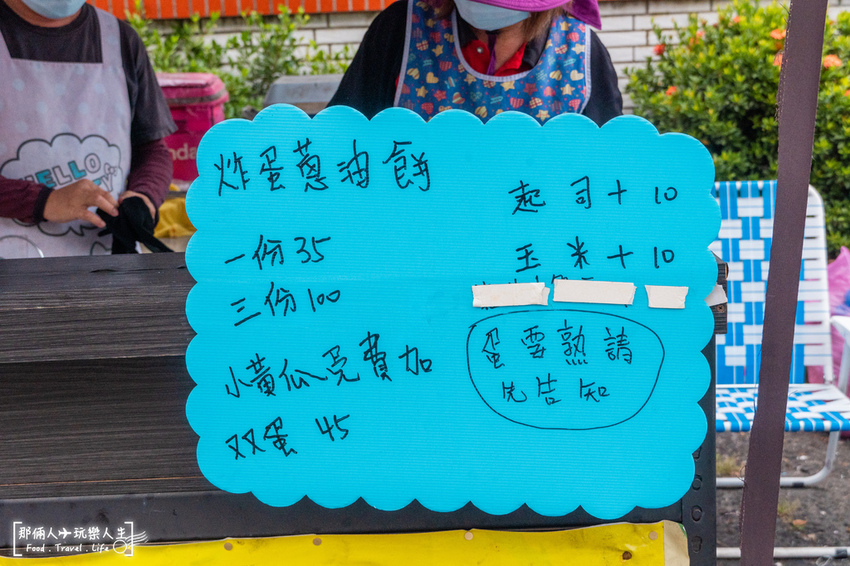 炸蛋蔥油餅
一份35
三份100
小黃瓜免費加
双蛋 45
起司+10
玉米+10
蛋要熟請
先告知
HELLO
那倆人玩樂人生
Food . Travel . Life